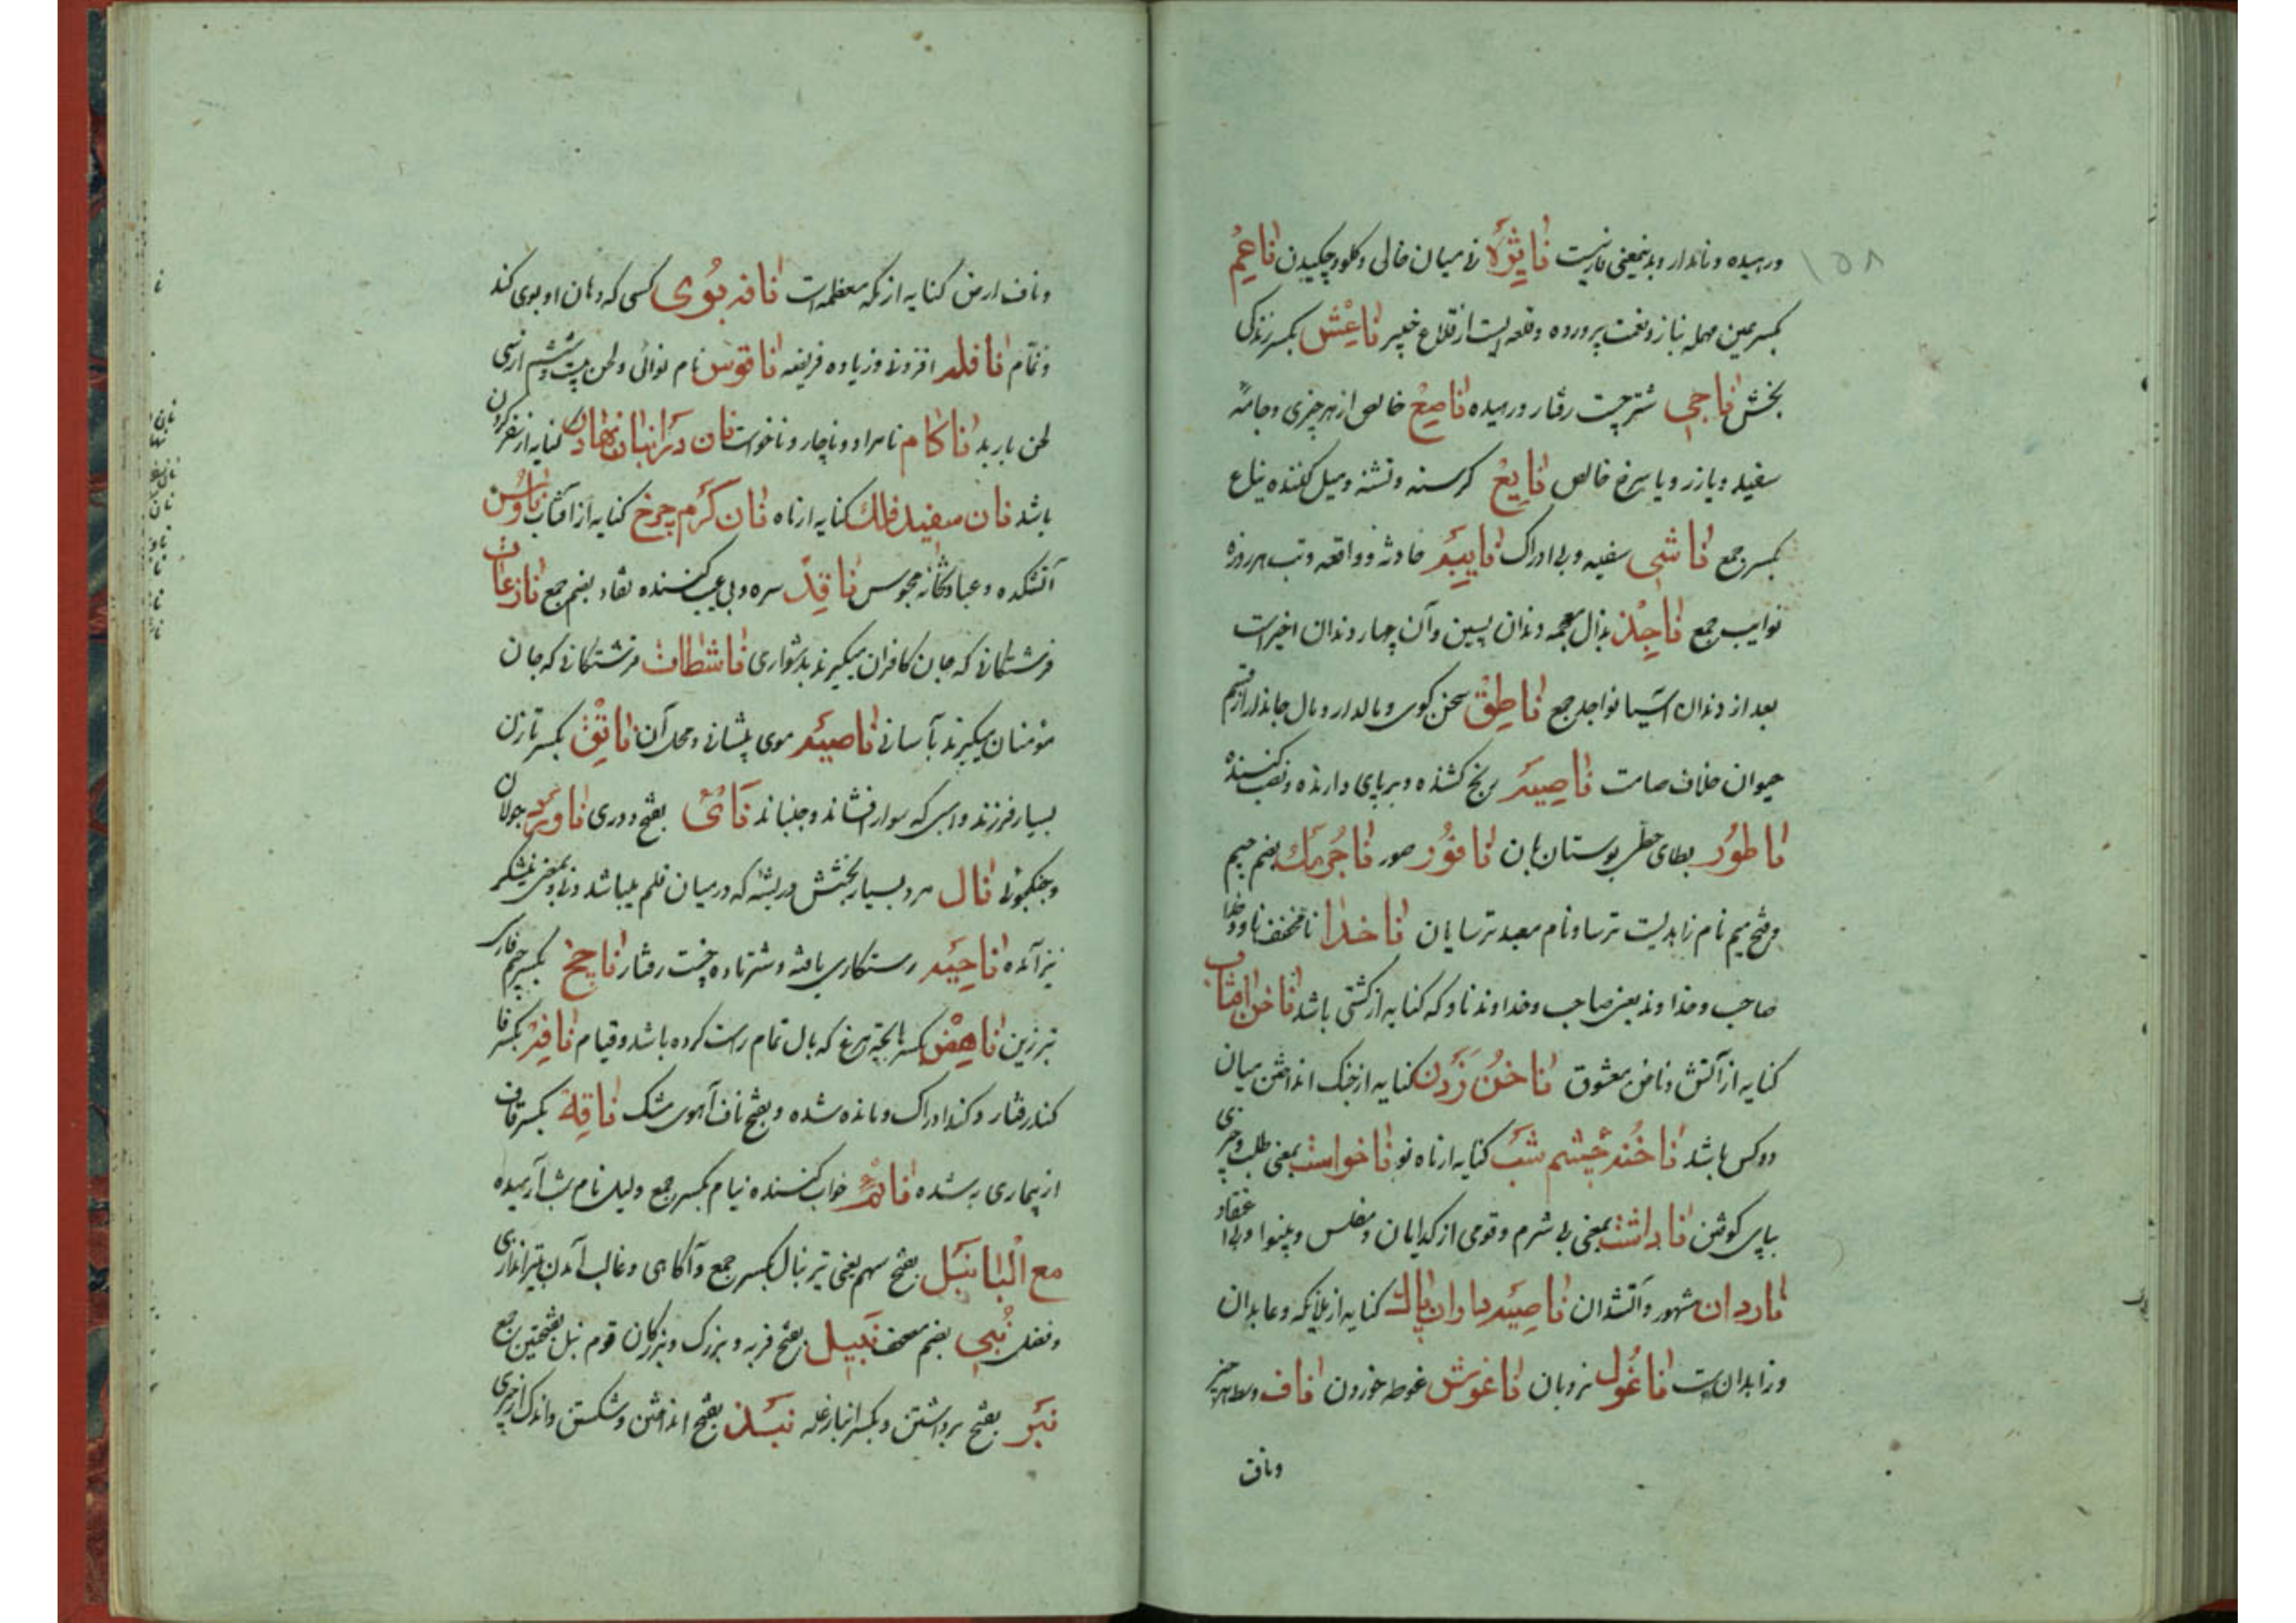 ۱۵۸
ورمیده و ناندار و بدینمعنی فارسیست نایژه نی میان خالی و کلو و چکیدن ناعم
بکسر عین مهمله بناز و نعمت پرورده و قلعه ایست از قلاع خیبر ناعش بکسر زندکی
بخش ناجی شتر چست رفتار و رمیده ناصع خالص از هر چیزی و جامهٔ
سفید و یا زرد و یا سرخ خالص نایع کرسنه و تشنه و میل کننده نیاع
بکسر جمع ناشی سفیه و بی ادراک نایبه حادثه و واقعه و تب هر روزه
نوایب جمع ناجذ بذال معجمه دندان پسین و آن چهار دندان اخیراست
بعد از دندان آسیا نواجذ جمع ناطق سخن کوی و مالدار و مال جاندار از قسم
حیوان خلاف صامت ناصبه رنج کشنده و برپای دارنده و نصب کننده
ناطور بطای حطی بوستان بان ناقور صور ناجرمک بضم جیم
و فتح میم نام زاهدیست ترسا و نام معبد ترسایان ناخدا نا مخفف ناو و خدا
صاحب و خداوند یعنی صاحب و خداوند ناو که کنایه از کشتی باشد ناخن آفتاب
کنایه از آتش و ناخن معشوق ناخن زدن کنایه از جنک انداختن میان
دو کس باشد ناخنه چشم شب کنایه از ماه نو ناخواست بمعنی طلب و چیزی
بپای کوفتن ناداشت بمعنی بی شرم و قومی از کدایان و مفلس و بینوا و بی اعتقاد
ناردان مشهور و آتشدان ناصیه داران پاک کنایه از ملائکه و عابدان
و زاهدانست ناغول نردبان ناغوش غوطه خوردن ناف وسط هر چیز
وناف
وناف ارض کنایه از مکه معظمه است نافه بوی کسی که دهان او بوی کند
و نمّام نافله افزونی و زیاده فریضه ناقوس نام نوائی و لحن بیست و ششم از سی
لحن باربد ناکام نامراد و ناچار و ناخواست نان در انبان نهادن کنایه از سفر کردن
باشد نان سفید فلک کنایه از ماه نان کرم چرخ کنایه از آفتاب ناوس
آتشکده و عبادتخانه مجوس ناقد سره و بی عیب کننده نقاد بضم جمع نازعات
فرشتکانی که جان کافران میکیرند بدشواری ناشطات فرشتکانی که جان
مؤمنان میکیرند بآسانی ناصیه موی پیشانی و محل آن ناتق بکسر تا زن
بسیار فرزند و اسبی که سوار افشاند و جنباند نای بفتح دوری ناورد جولان
و جنکجوئی نال مرد بسیار بخشش و ریشه که در میان قلم میباشد و نی و بمعنی نیشکر
نیز آمده ناجیه رستکاری یافته و شتر ماده چست رفتار ناچخ بکسر جیم فارسی
تبرزین ناهض بکسر ها بچه مرغ که بال تمام راست کرده باشد و قیام نافه بکسر فا
کند رفتار و کند ادراک و مانده شده و بفتح ناف آهوی مشک ناقه بکسر قاف
از بیماری به شده نائم خواب کننده نیام بکسر جمع و لیل نائم شب آرمیده
مع البا نبل بفتح سهم یعنی تیر نبال بکسر جمع و آکاهی و غالب آمدن بتیراندازی
و فضل نبی بضم مصحف نبیل بفتح فربه و بزرک و بزرکان قوم نبل بفتحتین جمع
نبر بفتح برداشتن و بکسر انبار غله نبذ بفتح انداختن و شکستن و اندک از چیزی